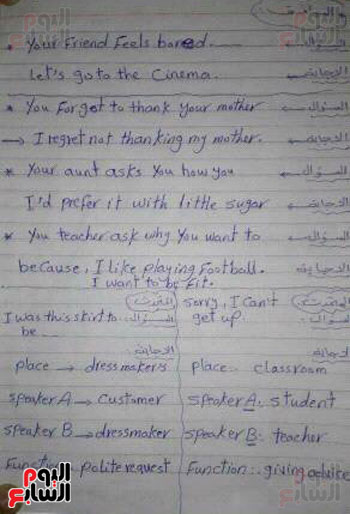 المواقف
* Your Friend Feels bored. السؤال
Let's go to the Cinema. الاجابة
* You Forget to thank your mother السؤال
→ I regret not thanking my mother. الاجابة
* Your aunt asks you how you السؤال
I'd prefer it with little sugar الاجابة
* You teacher ask why You want to السؤال
because, I like playing Football. الاجابة
I want to be fit.
sorry, I can't
I was this skirt to السؤال get up. السؤال
be
الاجابة الاجابة
place → dressmaker's place: classroom
speaker A → customer speaker A: student
speaker B → dressmaker speaker B: teacher
Function: polite request Function: giving advice
اليوم السابع
اليوم السابع
اليوم السابع